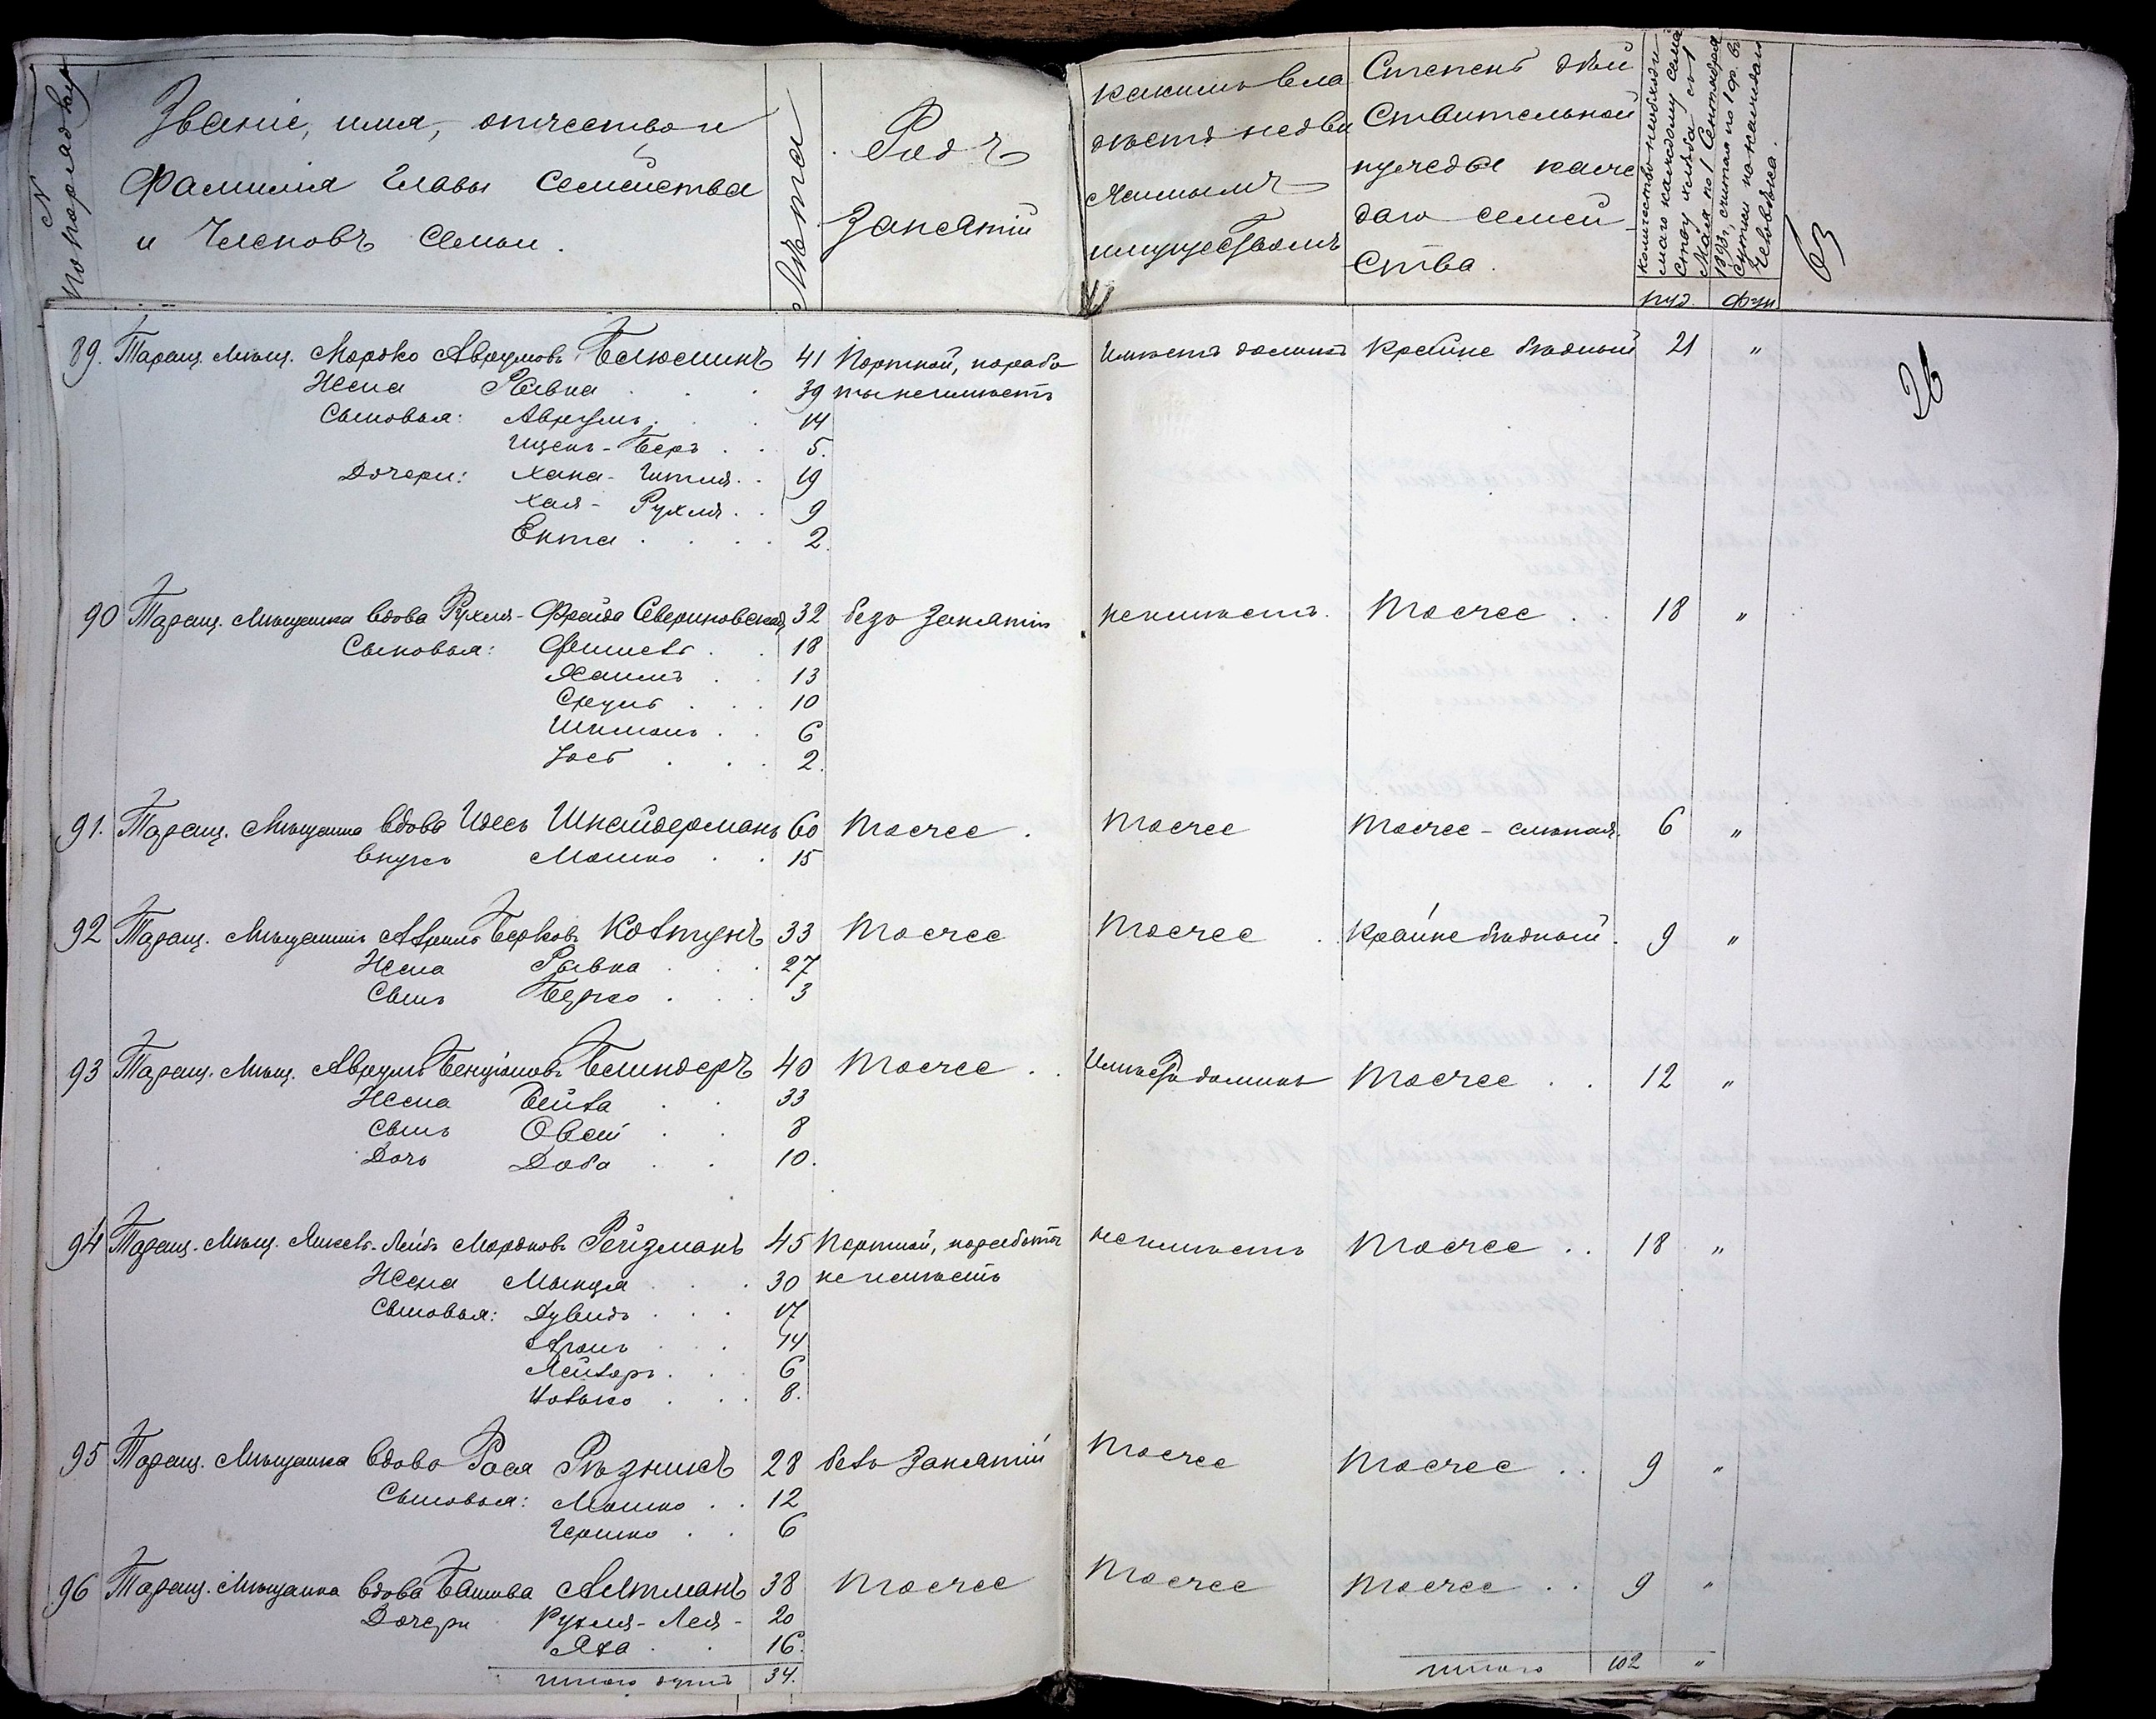 № по порядку
Званіе, имя, отчество и
Фамилія Главы Семейства
и Членовъ Семьи.
Лѣта
Родъ
Занятій
какимъ вла
дѣетъ недви
жимымъ
имуществомъ
Степень дѣй
ствительной
нужды каж
даго семей
ства.
Количество необходи
маго каждому семей
ству хлѣба съ 1
Мая по 1 Сентября
1893 г, считая по 1 ф. въ
сутки на каждаго
человѣка.
63
пуд. Фун
89. Таращ. Мѣщ. Мордко Аврумовъ 41 Портной, зарабо Имѣетъ домикъ Крайне бѣдный 21 "
26
Жена Рывка . . . 39 ты не имѣетъ
Сыновья: Аврумъ . . 14
Ицекъ-Беръ . . 5.
Дочери: Хана-Гитля . . 19
Хая-Рухля . . 9
Ента . . . . 2.
90 Таращ. Мѣщанка вдова Рухля-Фрайда Севериновская 32 безъ занятій не имѣетъ. Тоже . . 18 "
Сыновья: Фишель . . 18
Хаимъ . . 13
Сруль . . . 10
Шимонъ . . 6
Іось . . . 2.
91. Таращ. Мѣщанка вдова Идесь Шнайдерманъ 60 Тоже . Тоже Тоже - слѣпая. 6 "
внукъ Мошко . . 15
92 Таращ. Мѣщанинъ Берковъ Ковтунъ 33 Тоже Тоже . Крайне бѣдный. 9 "
Жена Рывка . . . 27
Сынъ Берко . . . 3
93 Таращ. Мѣщ. Аврумъ Бенціоновъ Белиндеръ 40 Тоже . . Имѣетъ домикъ Тоже . . 12 "
Жена Бейла . . 33
Сынъ Овсей . . 8
Дочь Доба . . 10.
94 Таращ. Мѣщ. Янкель-Лейбъ Мордковъ Рейзманъ 45 Портной, заработк не имѣетъ Тоже . . 18 "
Жена Мынця . . . 30 не имѣетъ
Сыновья: Дувидъ . . . 17
Аронъ . . . 14
Лейзоръ . . . 6
. . . 8.
95 Таращ. Мѣщанка вдова Рося Рѣзникъ 28 безъ занятій Тоже Тоже . . 9 "
Сыновья: Мошко . . 12
Гершко . . 6
96 Таращ. Мѣщанка вдова Башева Альтманъ 38 Тоже Тоже Тоже . . 9 "
Дочери Рухля-Лея - 20
. . 16.
итого душъ 34.
итого 102 "